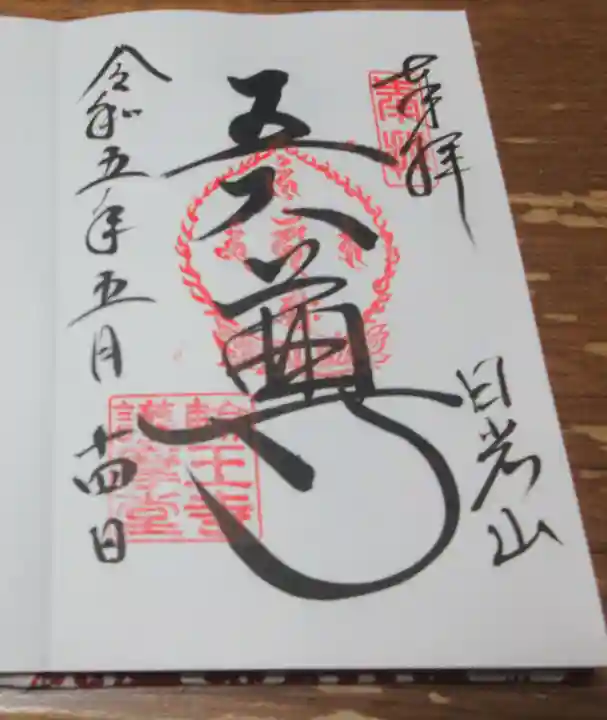 奉拝
日光山
五大尊
令和五年五月十四日
奉拝
輪王寺
護摩堂